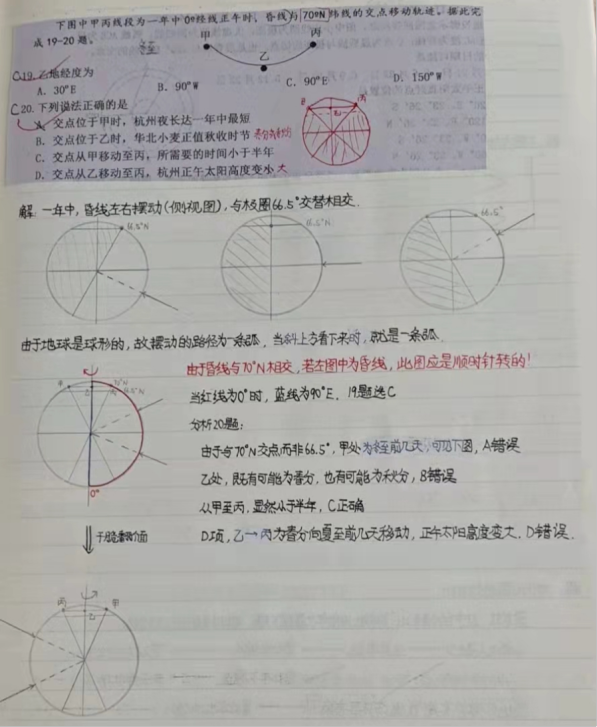 下图中甲丙线段为一年中0°经线正午时，昏线与70°N纬线的交点移动轨迹。据此完
成19-20题。
甲 乙 丙
C 19. 乙地经度为
A. 30°E B. 90°W C. 90°E D. 150°W
C 20. 下列说法正确的是
A. 交点位于甲时，杭州夜长达一年中最短
B. 交点位于乙时，华北小麦正值秋收时节
C. 交点从甲移动至丙，所需要的时间小于半年
D. 交点从乙移动至丙，杭州正午太阳高度变小 大
解：一年中，昏线左右摆动(侧视图)，与极圈66.5°交替相交.
66.5°N 66.5°N 66.5°N
由于地球是球形的，故摆动的路径为一条弧，当斜上方看下来时，就是一条弧.
由于昏线与70°N相交，若左图中为昏线，此图应是顺时针转的！
当红线为0°时，蓝线为90°E. 19题选C
分析20题：
由于与70°N交点而非66.5°，甲处为冬至前几天，可见下图，A错误
乙处，既有可能为春分，也有可能为秋分，B错误
从甲至丙，显然小于半年，C正确
D项，乙→丙为春分向夏至前几天移动，正午太阳高度变大. D错误.
甲 乙 丙 70°N 66.5°N
0°
丙 乙 甲